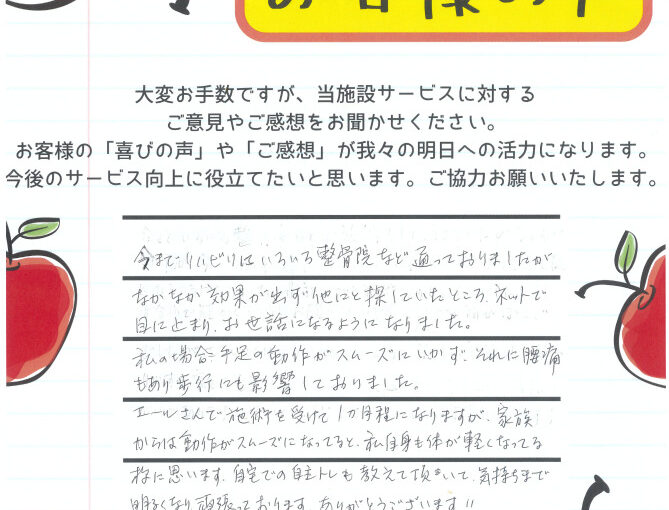 お客様の声
大変お手数ですが、当施設サービスに対する
ご意見やご感想をお聞かせください。
お客様の「喜びの声」や「ご感想」が我々の明日への活力になります。
今後のサービス向上に役立てたいと思います。ご協力お願いいたします。
今までリハビリはいろいろ整骨院など通っておりましたが
なかなか効果が出ず他にと探していたところ、ネットで
目に止まり、お世話になるようになりました。
私の場合手足の動作がスムーズにいかず、それに腰痛
もあり歩行にも影響しておりました。
エールさんで施術を受けて1カ月程になりますが、家族
からは動作がスムーズになってると、私自身も体が軽くなってる
様に思います。自宅での自主トレも教えて頂いて、気持ちまで
明るくなり頑張っております。ありがとうございます!!